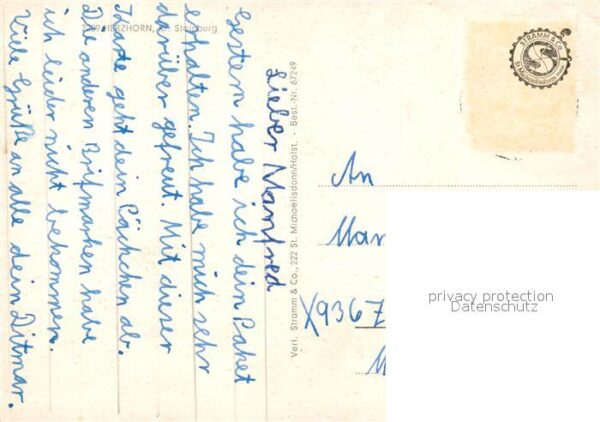 2209 HERZHORN, Kr. Steinburg
Lieber Manfred
Gestern habe ich dein Paket
erhalten. Ich habe mich sehr
darüber gefreut. Mit dieser
Karte geht dein Päckchen ab.
Die anderen Brifmarken habe
ich leider nicht bekommen.
Viele Grüße an alle dein Ditmar.
Verl. Stramm & Co., 222 St. Michaelisdonn/Holst. - Best.-Nr. 67249
STRAMM & CO.
St. Michaelisdonn
An
Man
X9367
M
privacy protection
Datenschutz